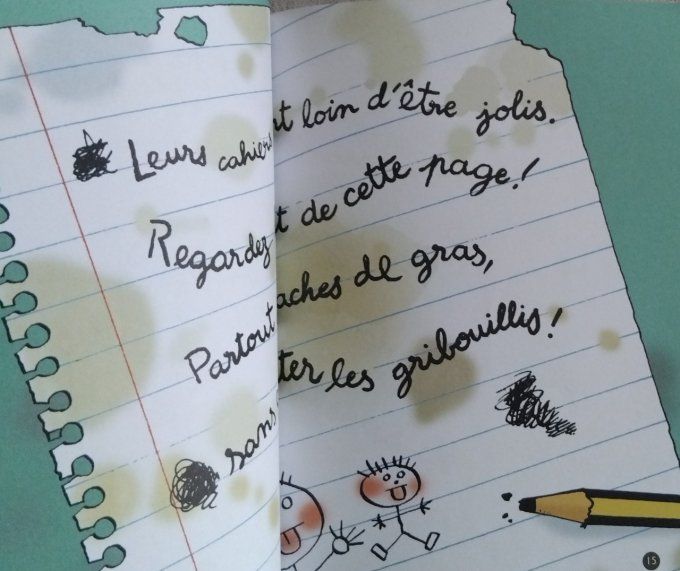 Leurs cahiers nt loin d'être jolis.
Regardez t de cette page !
Partout aches de gras,
sans ter les gribouillis !
15